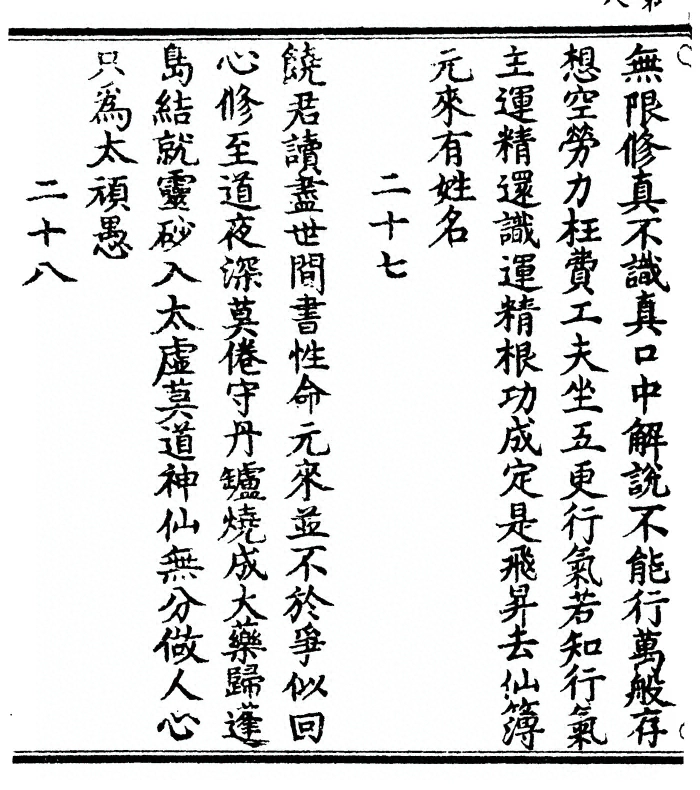 無限修真不識真口中解說不能行萬般存
想空勞力枉費工夫坐五更行氣若知行氣
主運精還識運精根功成定是飛昇去仙簿
元來有姓名
二十七
饒君讀盡世間書性命元來並不於爭似回
心修至道夜深莫倦守丹罏燒成大藥歸蓬
島結就靈砂入太虛莫道神仙無分做人心
只為太頑愚
二十八